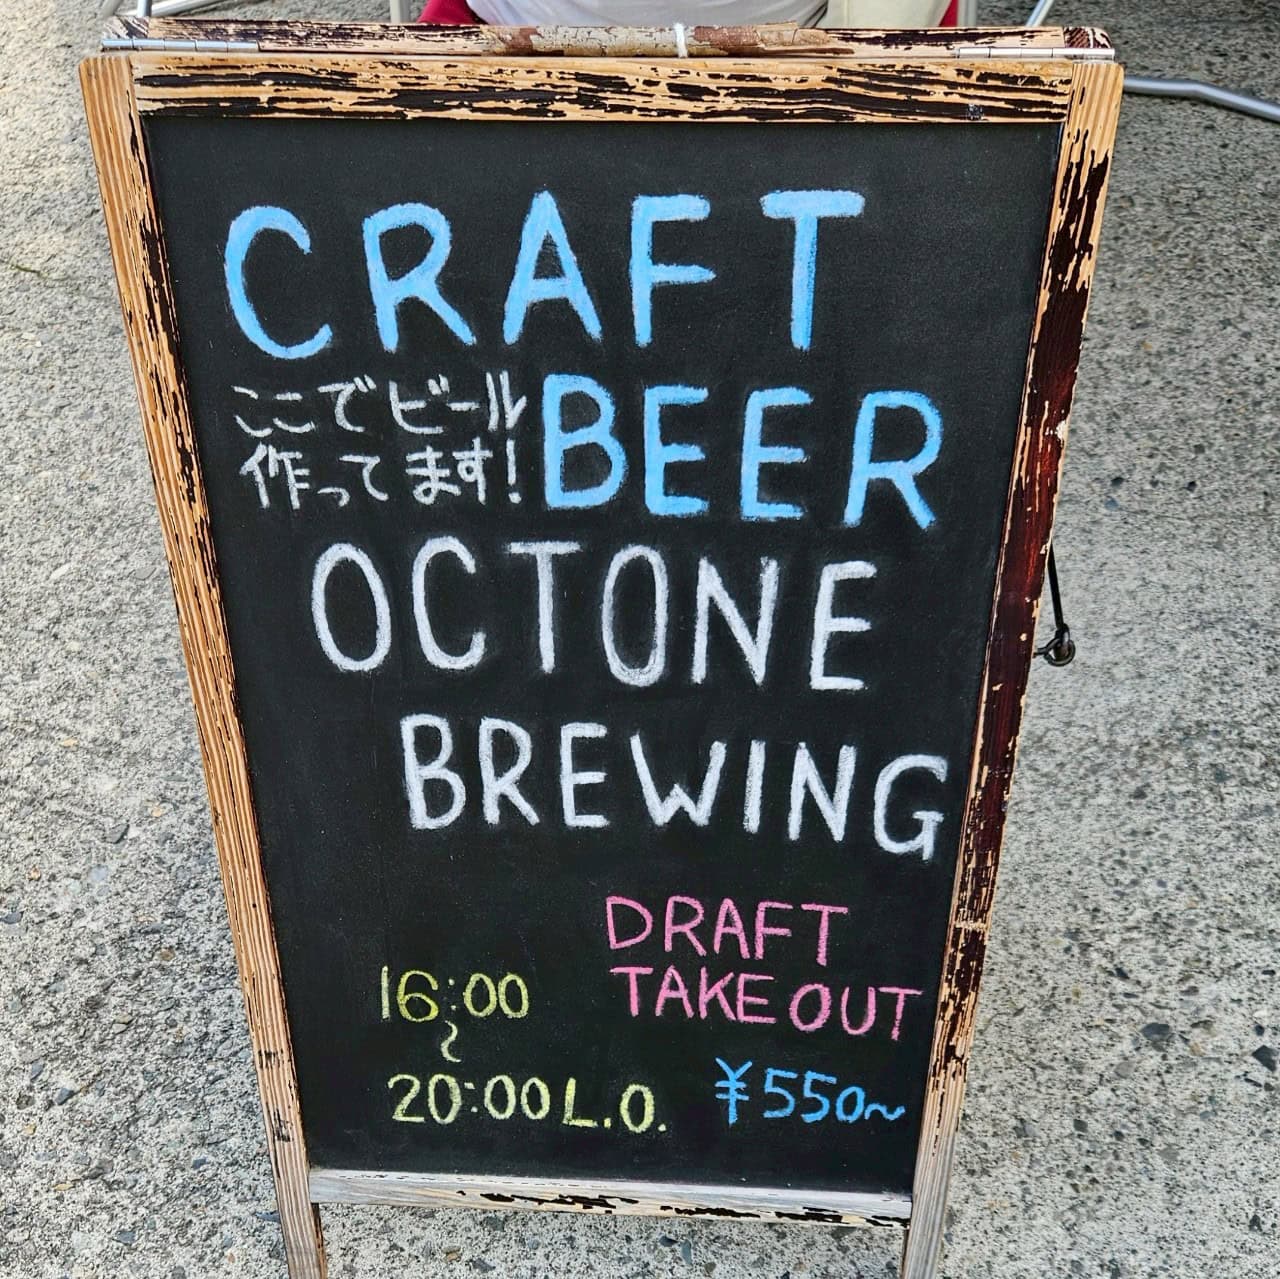 CRAFT
ここでビール
作ってます!
BEER
OCTONE
BREWING
DRAFT
TAKE OUT
16:00
~
20:00 L.O.
¥550~